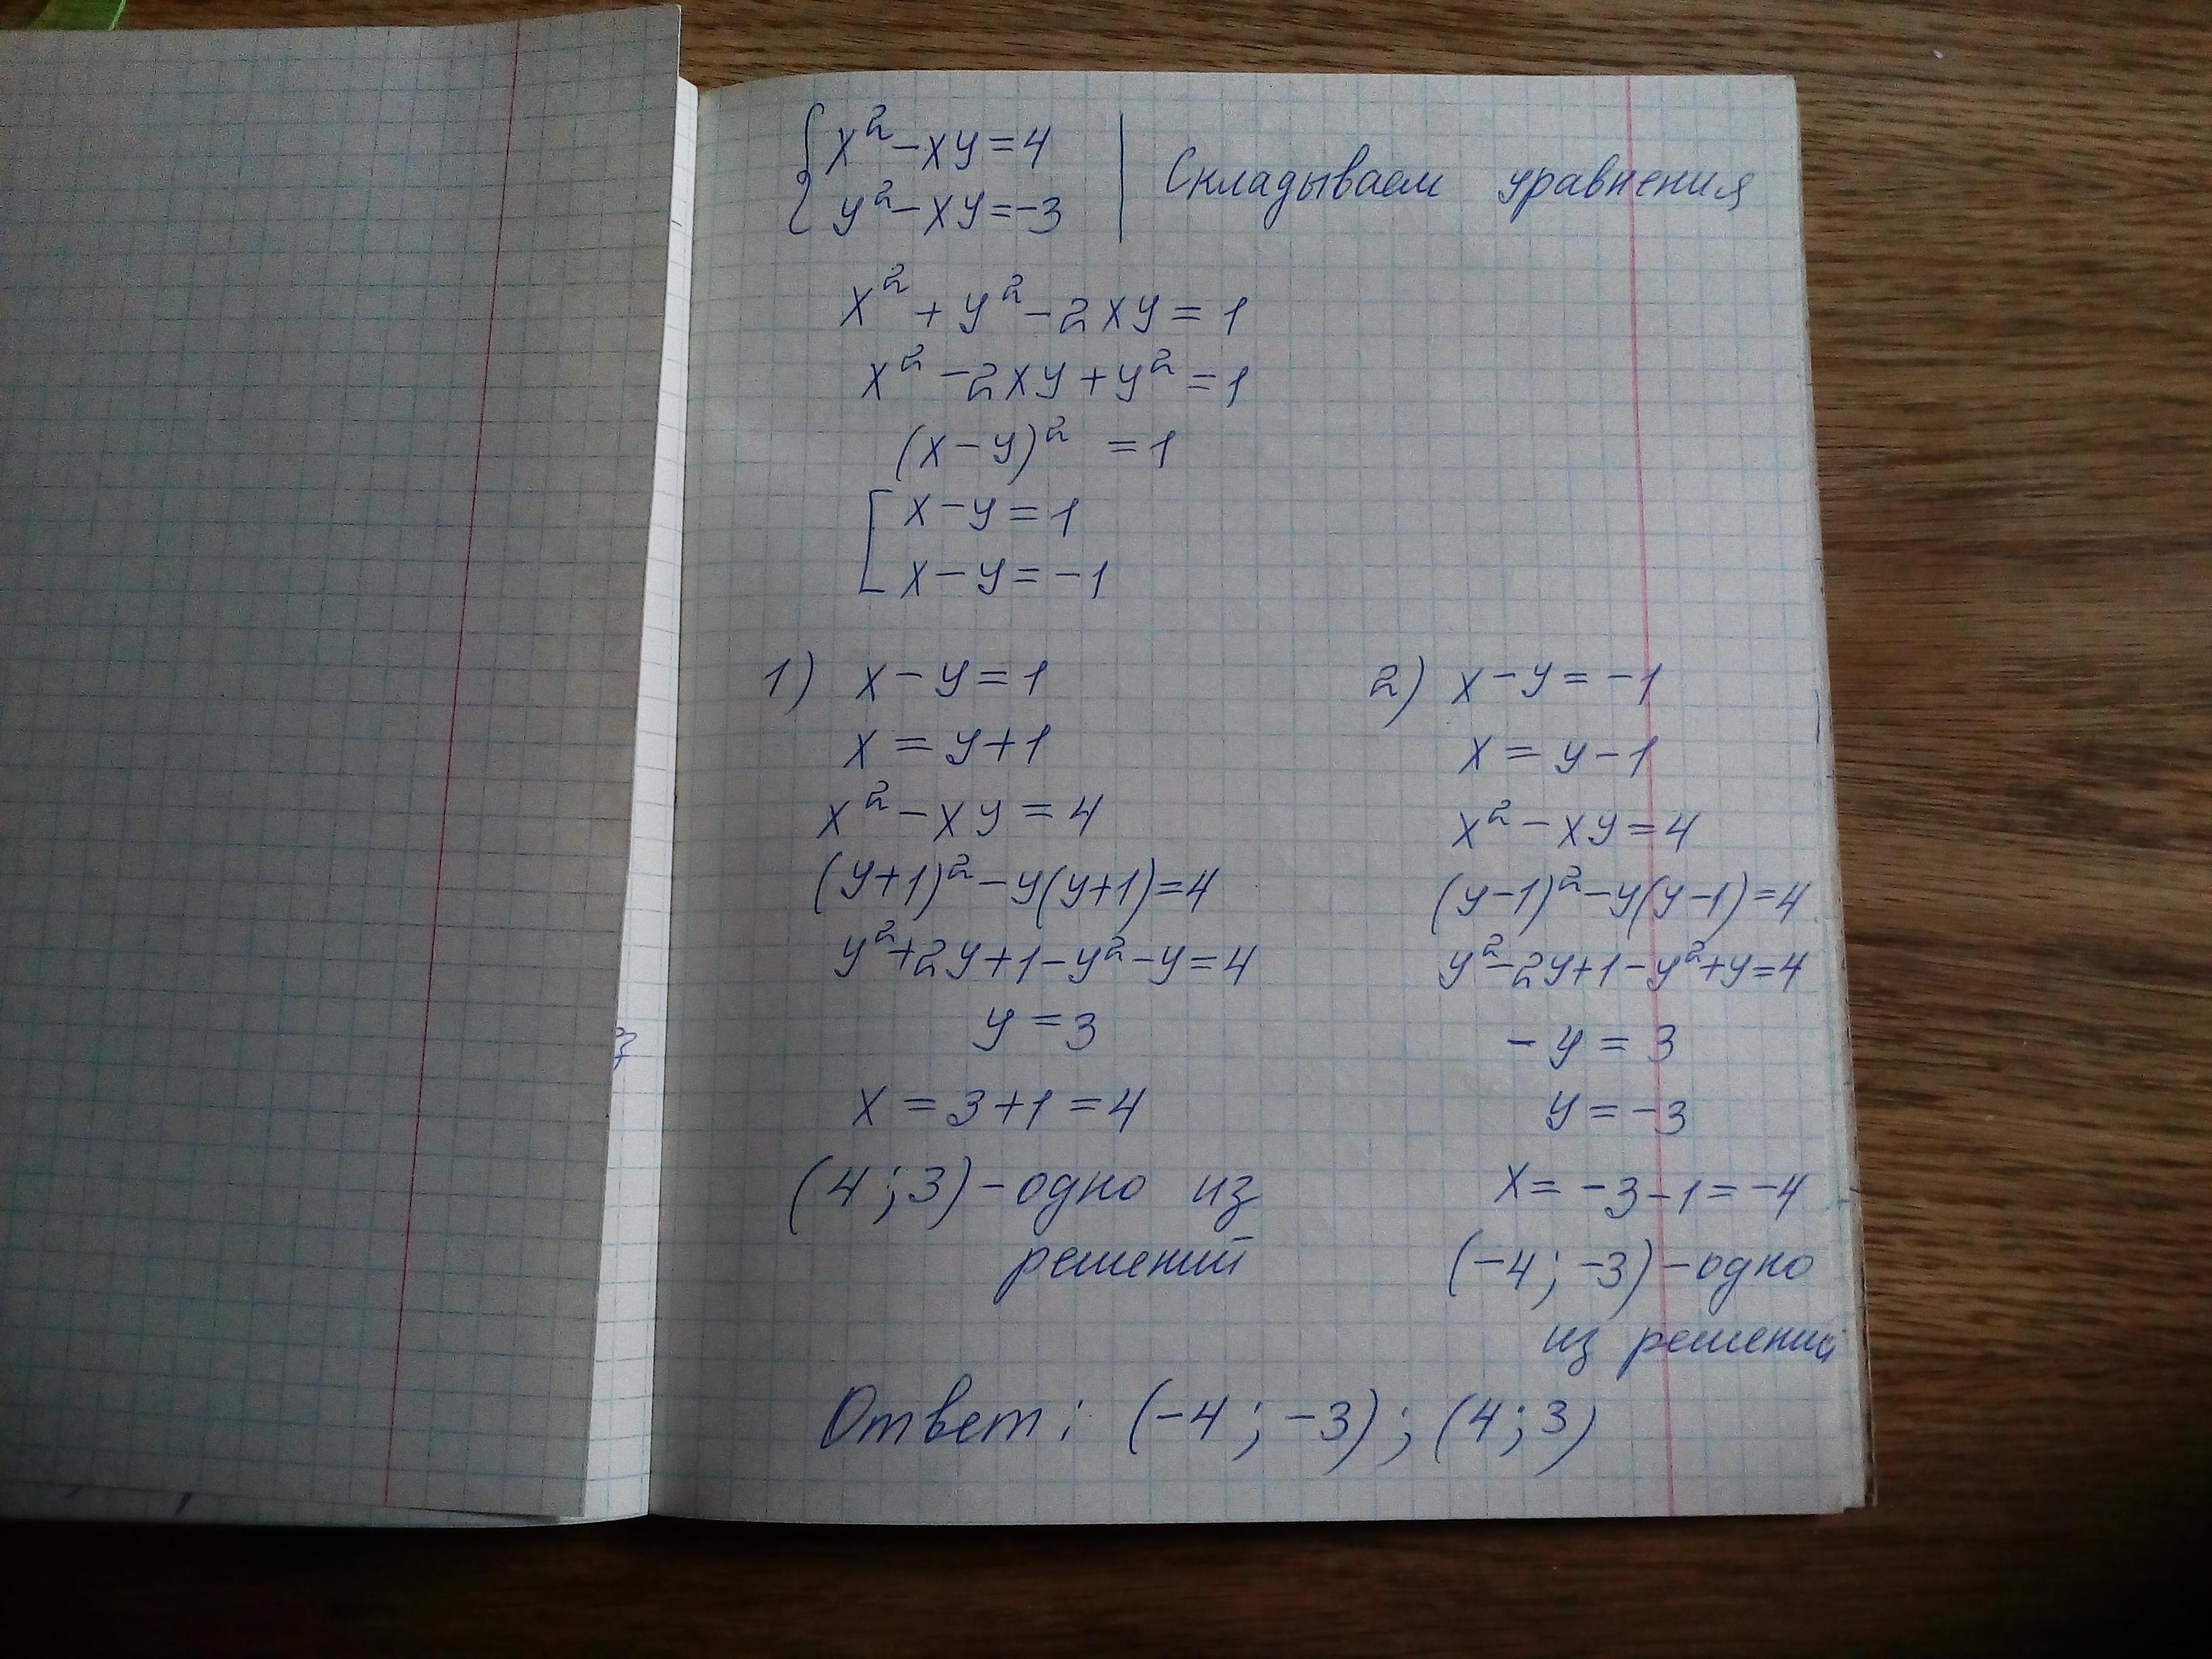 { x² - xy = 4
{ y² - xy = -3 | Складываем уравнения
x² + y² - 2xy = 1
x² - 2xy + y² = 1
(x - y)² = 1
[ x - y = 1
[ x - y = -1
1) x - y = 1
x = y + 1
x² - xy = 4
(y+1)² - y(y+1) = 4
y² + 2y + 1 - y² - y = 4
y = 3
x = 3 + 1 = 4
(4; 3) - одно из
решений
2) x - y = -1
x = y - 1
x² - xy = 4
(y-1)² - y(y-1) = 4
y² - 2y + 1 - y² + y = 4
- y = 3
y = -3
x = -3 - 1 = -4
(-4; -3) - одно
из решений
Ответ: (-4; -3); (4; 3)